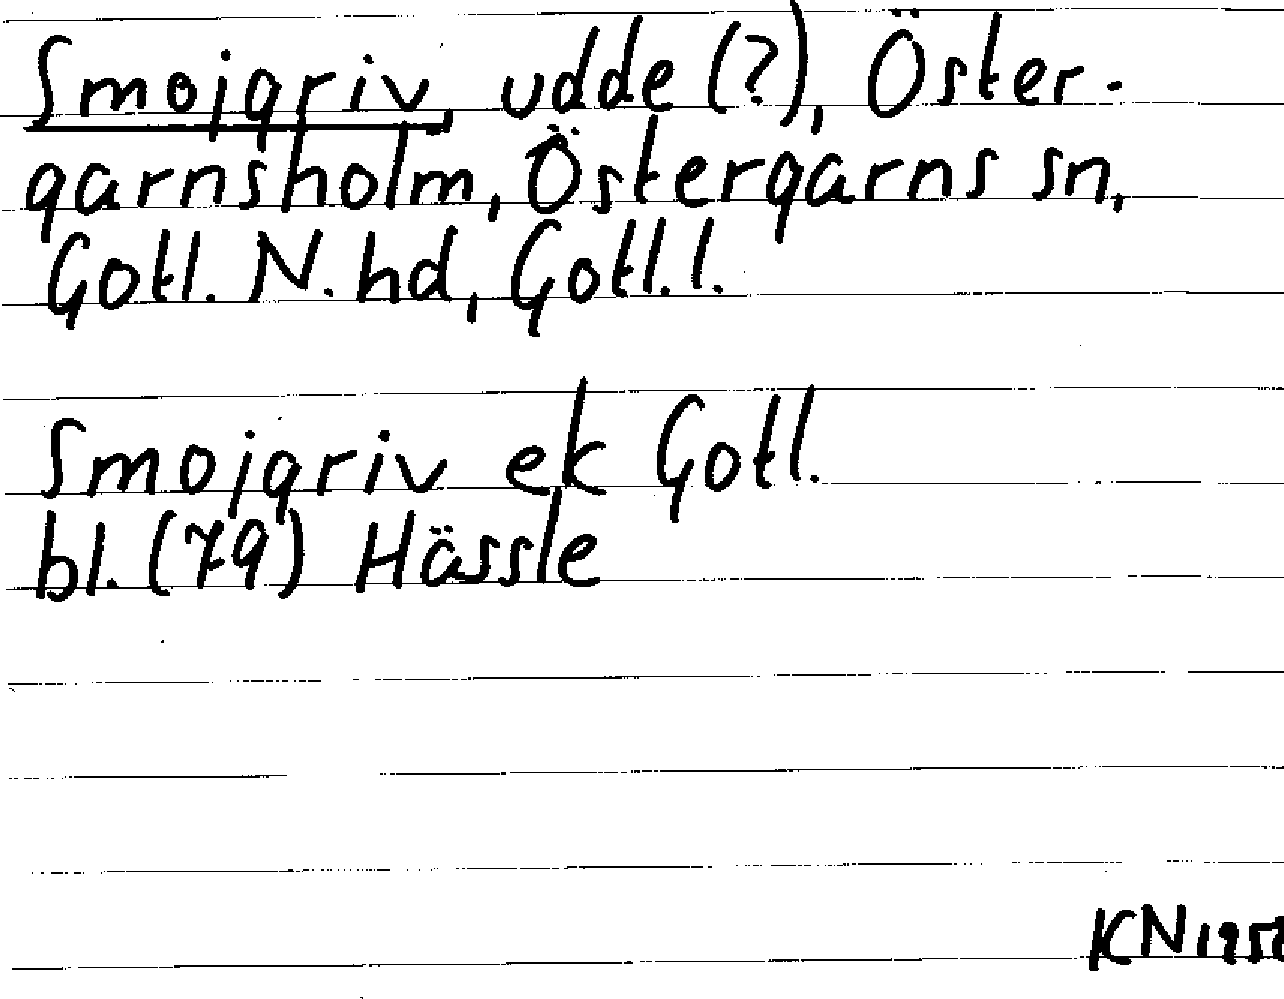 Smojgriv, udde (?), Öster-
garnsholm, Östergarns sn,
Gotl. N. hd, Gotl. l.
Smojgriv ek Gotl.
bl. (79) Hässle
KN